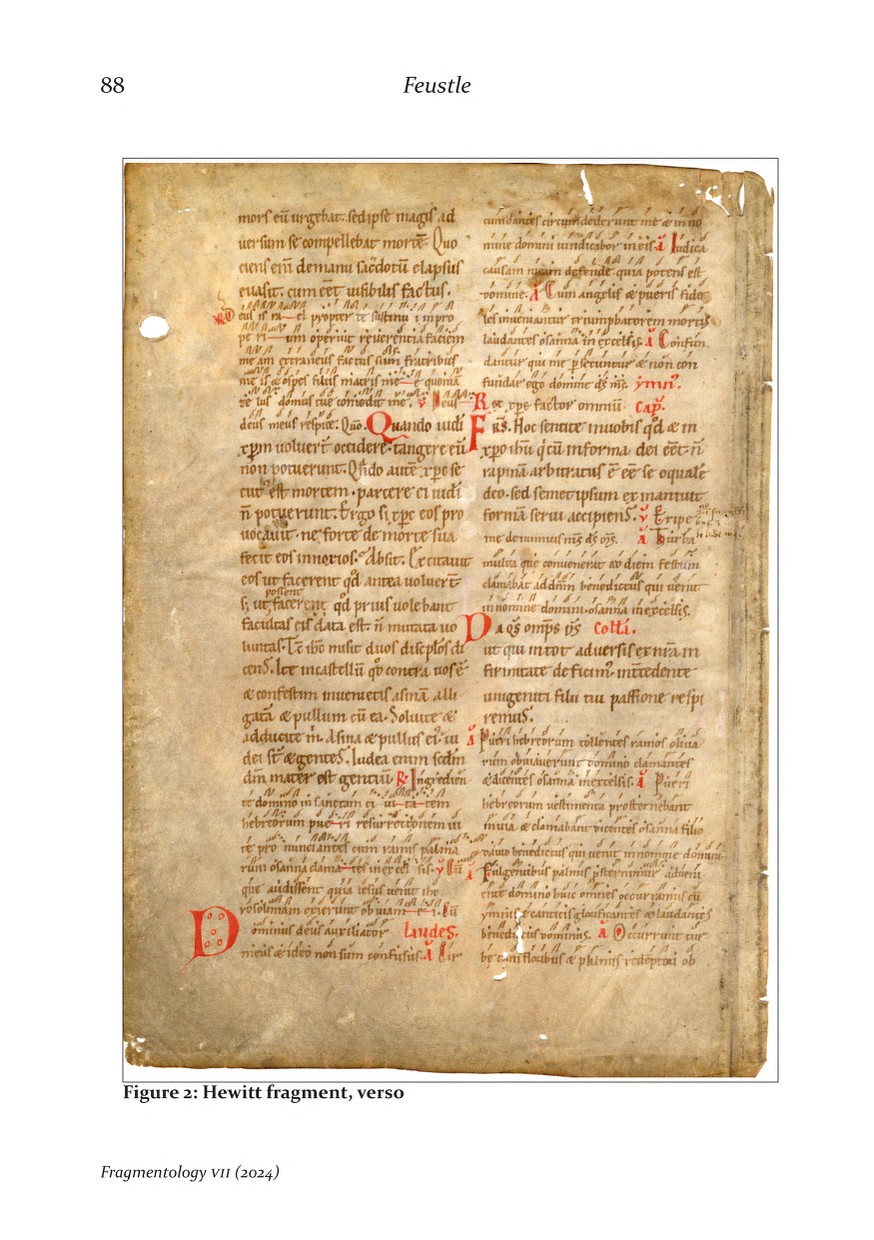 88
Feustle
mors eū urgebat. sed ipse magis ad
uersum se compellebat mortē. Quo
ciens eni de manu sacdotū elapsus
euasit. cum eēt uisibilis factus.
eus is ra–el propter te sustinui inpro
pe ri–um operuit reuerentia faciem
meam extraneus factus sum fratribus
me is & ospes filiis matris me–e quoniā
ze lus domus tue comedit me. v Deus
deus meus respice. Quo. Quando iudi
xpm uoluert occidere. tangere eū
non potuerunt. Qn̄do autē xpc se
cut est mortem. parcere ei iudi
n̄ potuerunt. Ergo si xpc eos pro
uocauit. ne forte de morte sua
fecit eos innoxios. Absit. Excitauit
eos ut facerent qd antea uoluert
possent
s; ut facerent qd prius uolebant
facultas eis data est. n̄ mutata uo
luntas. Tc ihc misit duos discipłos di
cens. Ite in castellū qd contra uos ē
& confestim inuenietis asinā alli
gatā & pullum cū ea. Soluite &
adducite m. Asina & pullus ei. iu
dei st & gentes. Iudea enim scdm
dm mater est gentiū R Ingredien
te domino in sanctam ci ui–ta–tem
hebreorum pue–ri resurrectionem ui
te pro nunciantes cum ramis palma
rum osanna clama–tes in excel sis. v Cū
que audissent quia iesus uenit ihe
rosolimam exierunt obuiam–e–i. Cū
Dominus deus auxiliator laudes.
meus & ideo non sum confusus. A Cir
cumdantes circumdederunt me & in no
mine domini uindicabor in eis. A Iudica
causam meam defende. quia potens est
domine. A Cum angelis & pueris fide
les inueniantur triumphatorem mortis
laudantes osanna in excelsis. A Confun
dantur qui me psecuntur & non con
fundar ego domine ds ms. ymn.
Rex xpe factor omniū cap.
Frs. Hoc sentite in uobis qd & in
xpo ihu q cū in forma dei eēt n̄
rapinā arbitratus ē eē se equalē
deo. sed semetipsum exinaniuit
formā serui accipiens. v Eripe
me de inimicis ms ds ms. A Turba
multa que conuenerat ad diem festum
clamabat ad dnm benedictus qui uenit
in nomine domini. osanna in excelsis.
Da qs omps ds Collā.
ut qui in tot aduersis ex nra in
firmitate deficim. intcedente
unigeniti filii tui passione respi
remus.
A Pueri hebreorum tollentes ramos oliua
rum obuiauerunt domino clamantes
& dicentes osanna in excelsis. A Pueri
hebreorum uestimenta prosternebant
in uia & clamabant dicentes osanna filio
dauid benedictus qui uenit in nomine domini
A Fulgentibus palmis psternimur adueni
ente domino huic omnes occurramus cū
ymnis & canticis glorificantes & laudantes
benedictus dominus. A Occurrunt tur
be cum floribus & palmis redeptori ob
Figure 2: Hewitt fragment, verso
Fragmentology VII (2024)